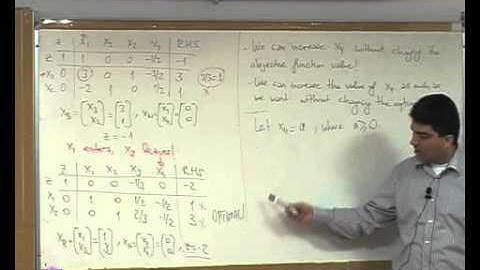 Z X₁ X₂ X₃ X₄ RHS
Z 1 1 0 0 -1/2 -1
X₃ 0 (3) 0 1 -1/2 3 3/3=1
X₂ 0 -2 1 0 1/2 1
X_B = (X₃ X₂) = (3 1), X_N = (X₁ X₄) = (0 0)
Z = -1
X₁ enters, X₃ leaves!
Z X₁ X₂ X₃ X₄ RHS
Z 1 0 0 -1/3 0 -2
X₁ 0 1 0 1/3 -1/2 1 X
X₂ 0 0 1 2/3 -1/2 3 X OPTIMAL!
X_B = (X₁ X₂) = (1 3), X_N = (X₃ X₄) = (0 0), Z = -2
- We can increase X₄ without changing the
objective function value!
- We can increase the value of X₄ as much as
we want without changing the
Let X₄ = a, where a ≥ 0.